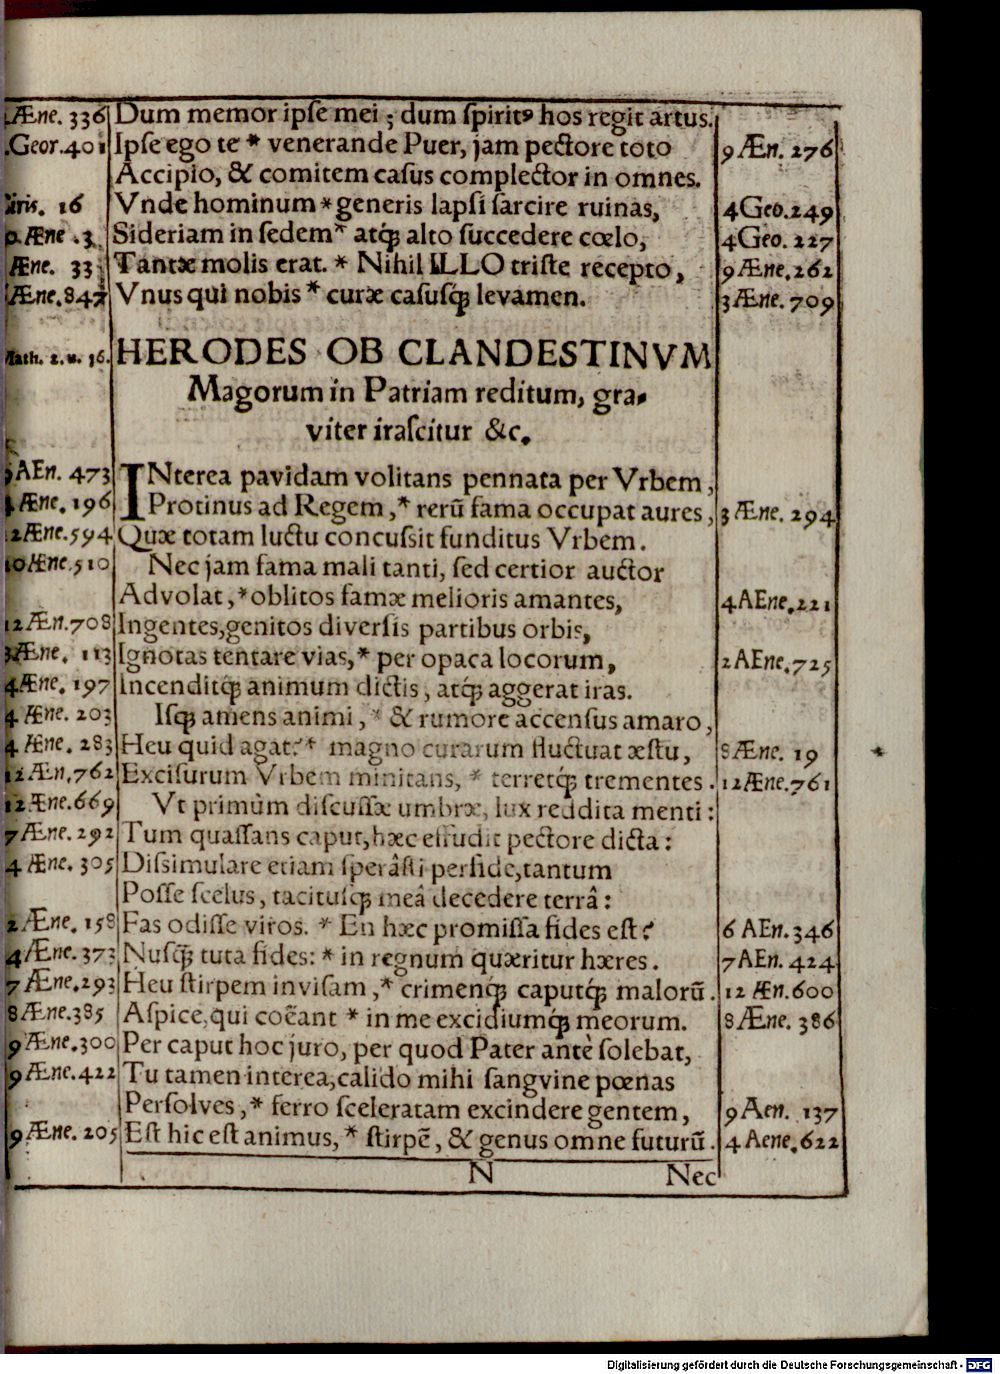 Æne. 336 Dum memor ipse mei ; dum spiritꝰ hos regit artus.
.Geor.401 Ipse ego te * venerande Puer, jam pectore toto 9 Æn. 276
Accipio, & comitem casus complector in omnes.
16 Vnde hominum * generis lapsi sarcire ruinas, 4Geo.249
Æne .3 Sideriam in sedem * atq́ꝫ alto succedere cœlo, 4Geo. 227
Æne. 33 Tantæ molis erat. * Nihil ILLO triste recepto, 9Æne.262
Æne.847 Vnus qui nobis * curæ casusq́ꝫ levamen. 3Æne.709
Math. 2. v. 16. HERODES OB CLANDESTINVM
Magorum in Patriam reditum, gra-
viter irascitur &c.
9AEn. 473 INterea pavidam volitans pennata per Vrbem,
4Æne.196 Protinus ad Regem, * rerũ fama occupat aures, 3Æne. 294
12Æne.594 Quæ totam luctu concussit funditus Vrbem.
10Æne.510 Nec jam fama mali tanti, sed certior auctor
Advolat, * oblitos famæ melioris amantes, 4AEne.221
12Æn.708 Ingentes, genitos diversis partibus orbis,
3Æne. 113 Ignotas tentare vias, * per opaca locorum, 2AEne.725
4Æne. 197 Incenditq́ꝫ animum dictis, atq́ꝫ aggerat iras.
4 Æne. 203 Isq́ꝫ amens animi, * & rumore accensus amaro,
4 Æne. 283 Heu quid agat? * magno curarum fluctuat æstu, 8Æne. 19 *
12Æn.762 Excisurum Vrbem minitans, * terretq́ꝫ trementes. 12Æne.761
12Æne.669 Vt primùm discussæ umbræ, lux reddita menti:
7Æne. 292 Tum quassans caput, hæc effudit pectore dicta:
4 Æne. 305 Dissimulare etiam sperâsti perfide, tantum
Posse scelus, tacitusq́ꝫ meâ decedere terrâ:
2Æne. 158 Fas odisse viros. * En hæc promissa fides est? 6 AEn.346
4Æne.373 Nusq̃ꝫ tuta fides: * in regnum quæritur hæres. 7AEn. 424
7Æne.293 Heu stirpem invisam, * crimenq́ꝫ caputq́ꝫ malorũ. 12 Æn.600
8Æne.385 Aspice, qui coẽant * in me excidiumq́ꝫ meorum. 8Æne. 386
9Æne.300 Per caput hoc juro, per quod Pater antè solebat,
9Æne.422 Tu tamen interea, calido mihi sangvine pœnas
Persolves, * ferro sceleratam excindere gentem, 9Aen. 137
9Æne. 205 Est hic est animus, * stirpẽ, & genus omne futurũ. 4Aene.622
N Nec
Digitalisierung gefördert durch die Deutsche Forschungsgemeinschaft - DFG